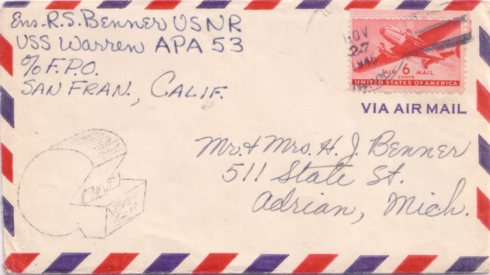 Ens. R.S. Benner USNR
USS Warren APA 53
c/o F.P.O.
SAN FRAN., CALIF.
NOV
27
AIR 6 MAIL
CENTS
UNITED STATES OF AMERICA
VIA AIR MAIL
Mr. & Mrs. H. J. Benner
511 State St.
Adrian, Mich.